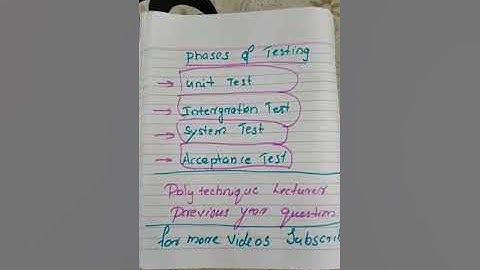 Phases of Testing
→ Unit Test
→ Intergration Test
→ System Test
→ Acceptance Test
Polytechnique Lecturer
Previous year question
for more Videos Subscri